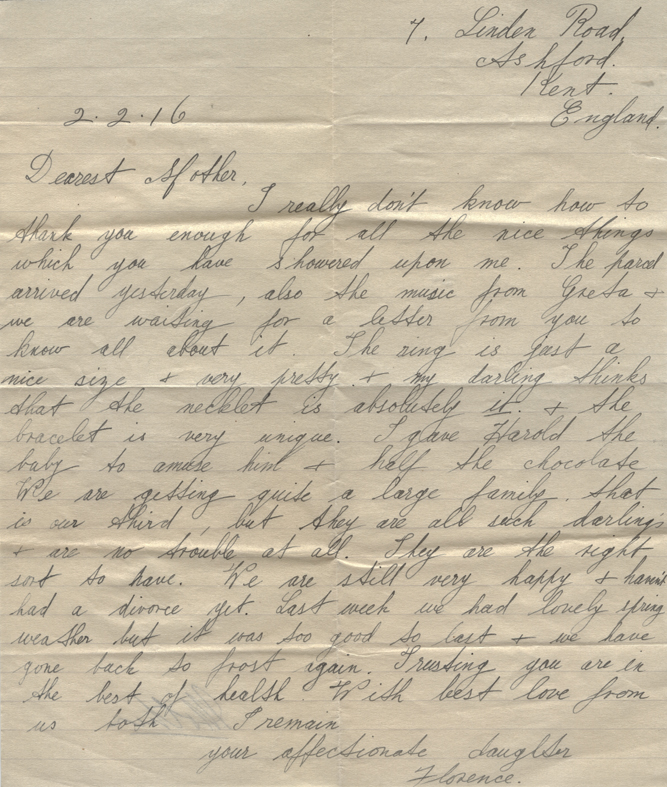 7. Linden Road,
Ashford.
Kent.
England.
2.2.16
Dearest Mother,
I really don't know how to
thank you enough for all the nice things
which you have showered upon me. The parcel
arrived yesterday, also the music from Greta +
we are waiting for a letter from you to
know all about it. The ring is just a
nice size + very pretty + my darling thinks
that the necklet is absolutely it. + the
bracelet is very unique. I gave Harold the
baby to amuse him + half the chocolate
We are getting quite a large family. that
is our third, but they are all such darlings
+ are no trouble at all. They are the right
sort to have. We are still very happy + haven't
had a divorce yet. Last week we had lovely spring
weather but it was too good to last + we have
gone back to frost again. Trusting you are in
the best of health. With best love from
us both I remain
your affectionate daughter
Florence.